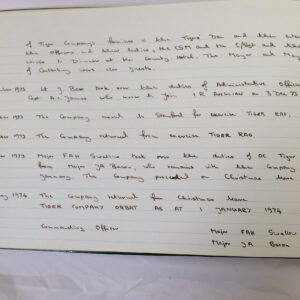 of Tiger Company's families in the Tigers' Den and then entertained
the Officers and their ladies, the CSM and the C/Sgt and their
wives to Dinner at the County Hotel. The Mayor and Mayoress
of Canterbury were also guests.
1973 Lt J. Bean took over the duties of Administrative Officer
Capt A. who move to join 1 R ANGLIAN on 3 Dec 73
1973 The Company moved to Stanford for exercise TIGER RAG.
1973 The Company returned from exercise TIGER RAG.
1973 Major FAH Swallow took over the duties of OC Tiger
from Major JA Bacon, who remained with the Company
January. The Company proceeded on Christmas leave
1974. The Company returned from Christmas leave
TIGER COMPANY ORBAT AS AT 1 JANUARY 1974
Commanding Officer Major FAH Swallow
Major JA Bacon